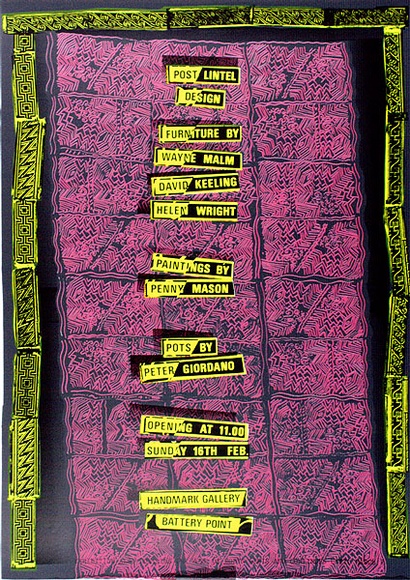 POST LINTEL
DESIGN
FURNITURE BY
WAYNE MALM
DAVID KEELING
HELEN WRIGHT
PAINTINGS BY
PENNY MASON
POTS BY
PETER GIORDANO
OPENING AT 11.00
SUNDAY 16TH FEB.
HANDMARK GALLERY
BATTERY POINT